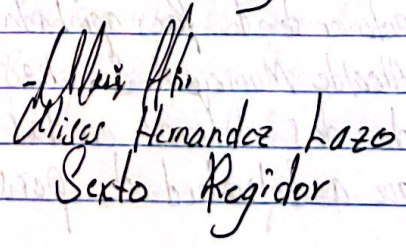 Ulises Hernandez Lazo
Sexto Regidor